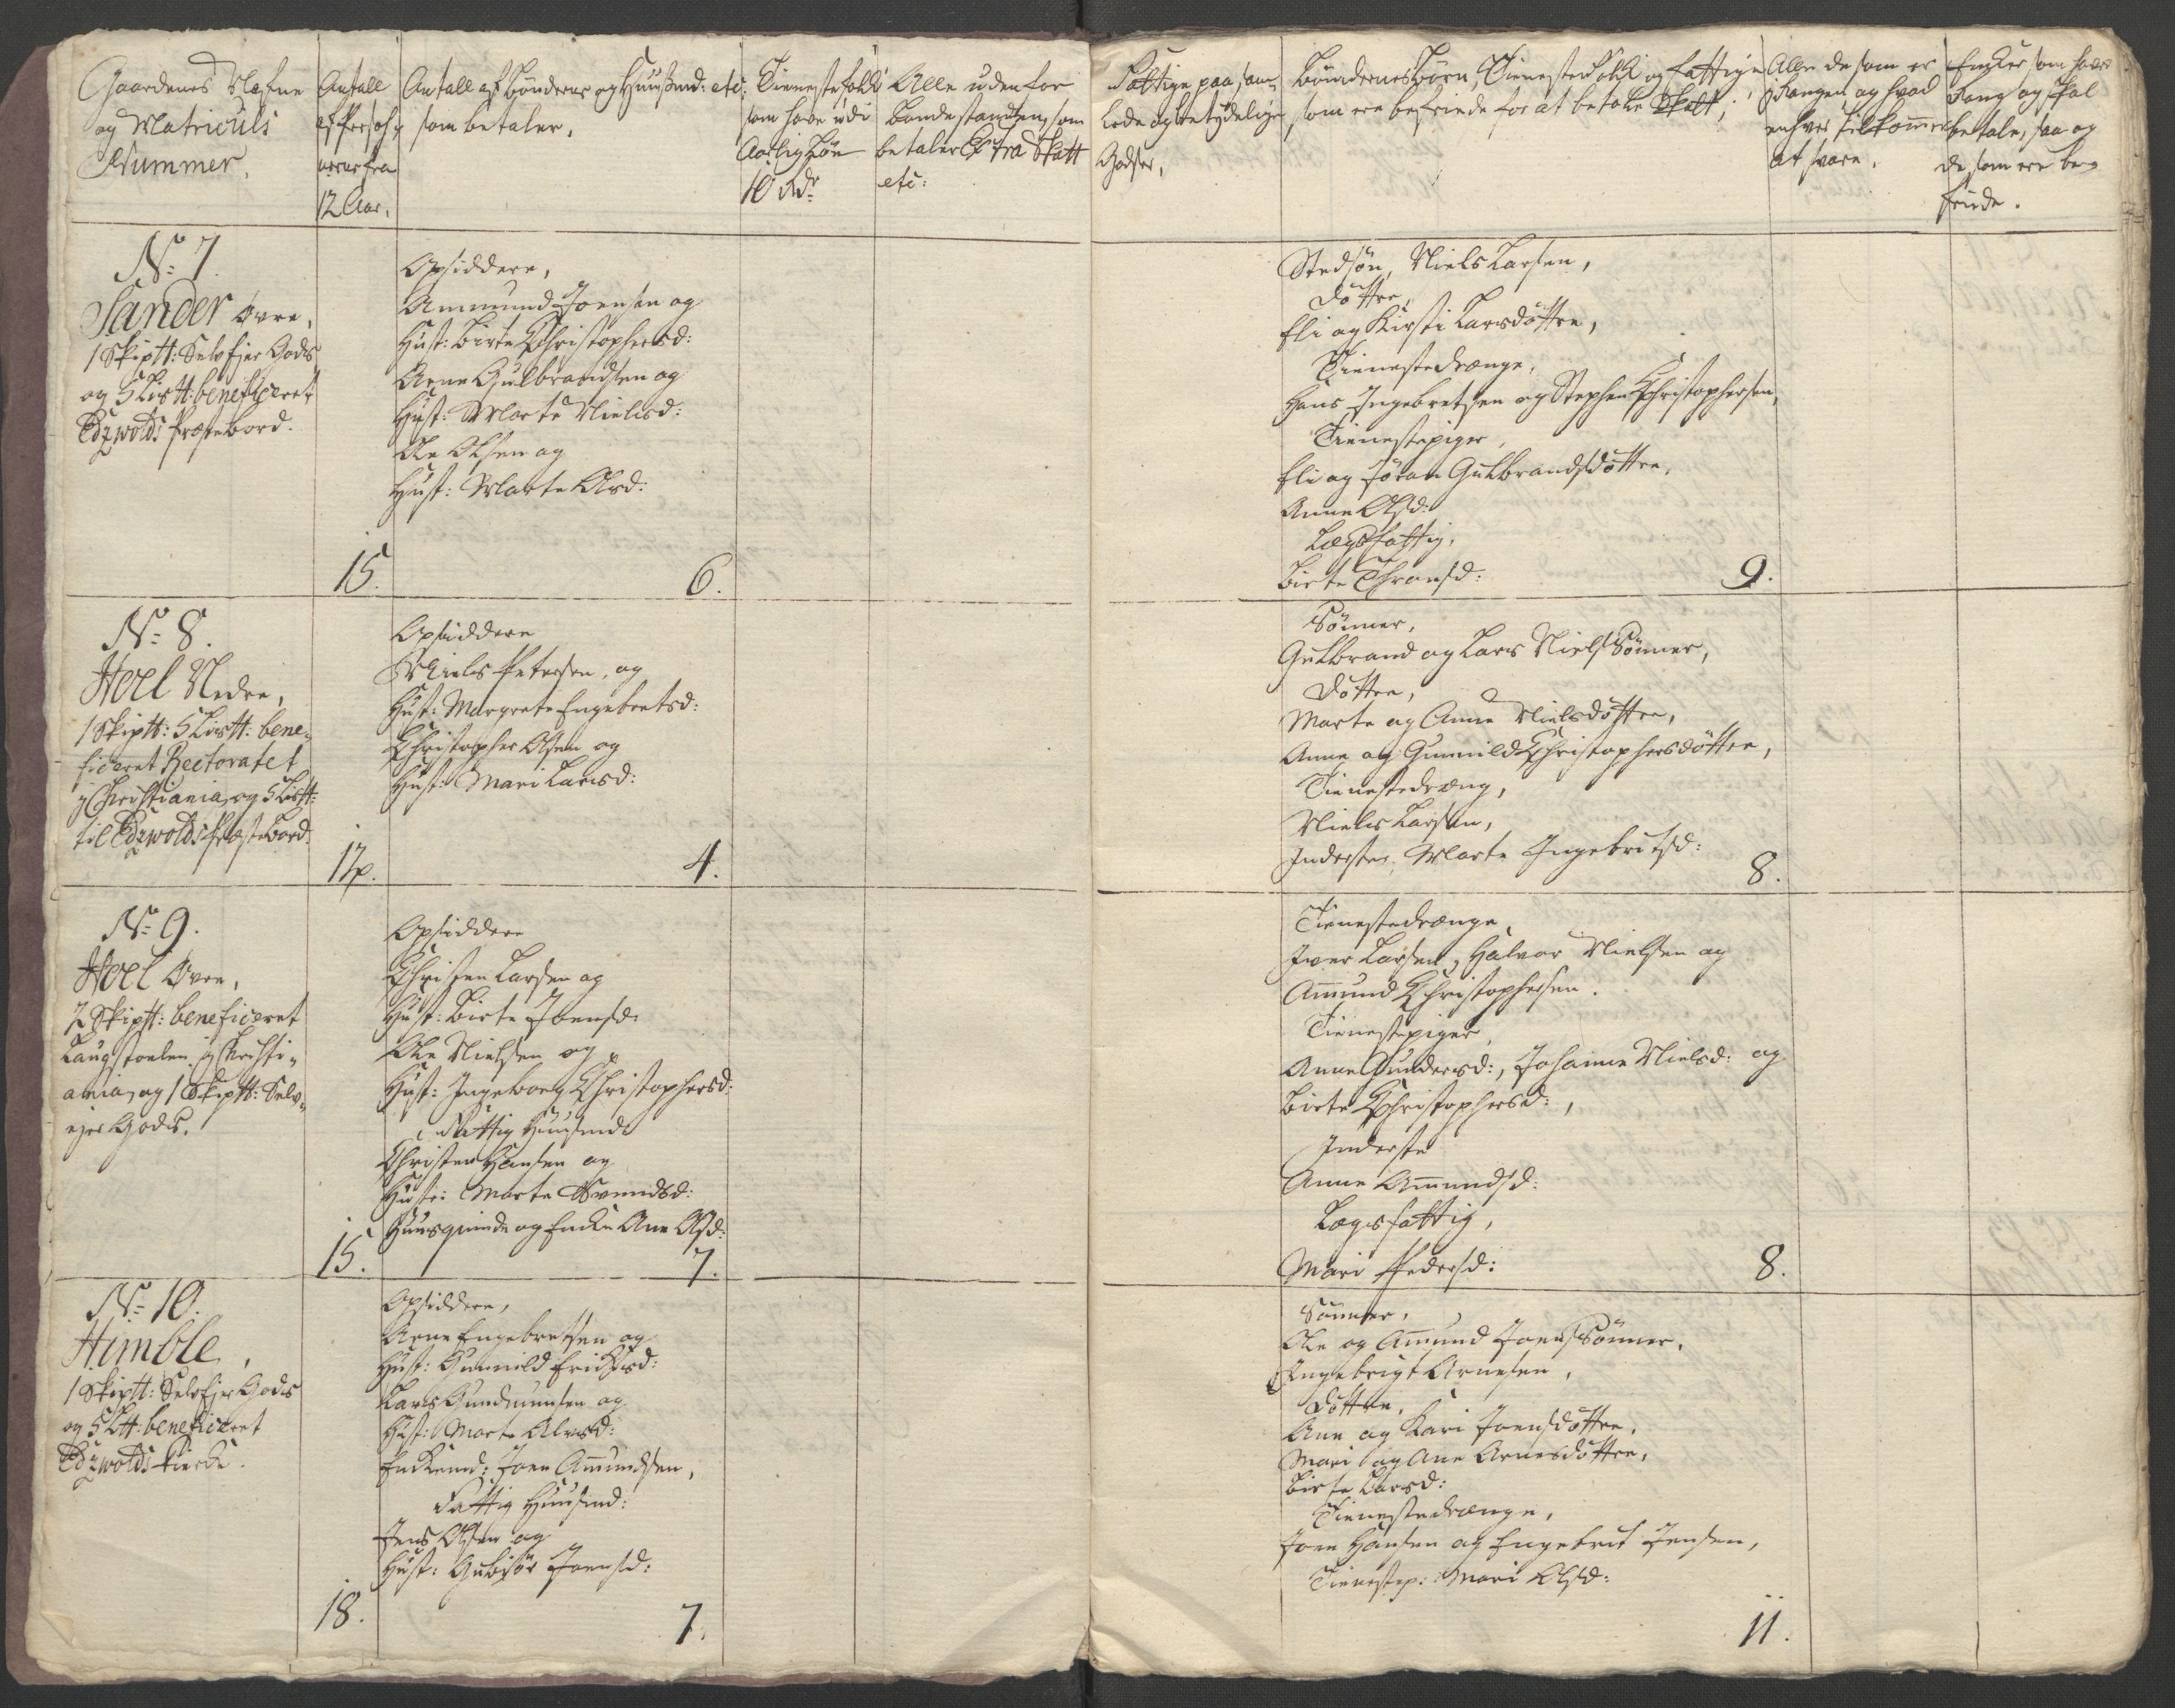 Gaardenes Nafne
og Matriculs
Nummer.
Antall
af Personer
fra
12 Aar.
Antall af Bönderne og Huusmd: etc:
som betaler.
Tienestefolk
som have udi
Aarlig Løn
10 Rdr
Alle uden for
bondestanden, som
betaler Extra Skatt
etc:
Fattige paa, sam-
lede og betydelige
Godser.
Bøndernes Børn, Tienestefolk og fattige
som ere befriede for at betale Skatt;
Alle de som er
i Rangen og hvad
enhver tilkommer
at svare.
Enker som have
Rang og skal
betale, saa og
de som ere be-
friede.
No 7.
Sander Øvre,
1 Skiptt: Selvejer Gods
og 5 Listt: beneficeret
Edzwolds Præstebord.
15.
Opsiddere,
Ammund Joensen og
Hust: Birte Christophersd:
Arne Gulbrandsen og
Hust: Marte Nielsd:
Ole Olsen og
Hust: Marte Olsd:
6.
Stedsøn, Niels Larsen,
Døttre,
Eli og Kirsti Larsdøttre,
Tienestedrænge,
Hans Ingebretsen og Stephen Christophersen,
Tienestepiger,
Eli og Jöran Gulbrandsdøttre,
Anne Olsd:
Lægsfattig,
Birte Thronsd:
9.
No 8.
Hoel Nedre,
1 Skiptt: 5 Listt: bene-
ficeret Rectoratet
i Christiania, og 5 Listt:
til Edzwolds Præstebord.
12.
Opsiddere
Niels Petersen, og
Hust: Margrete Engebretsd:
Christopher Olsen og
Hust: Mari Larsd:
4.
Sönner,
Gulbrand og Lars Niels Sönner,
Døttre,
Marte og Anne Nielsdøttre,
Anne og Gunnild Christophersdøttre,
Tienestedræng,
Niels Larsen,
Inderste, Marte Ingebritsd:
8.
No 9.
Hoel Øvre,
2 Skiptt: beneficeret
Laugstolen i Christi-
ania, og 1 Skiptt: Selv-
ejer Gods.
15.
Opsiddere
Christen Larsen og
Hust: Birte Joensd:
Ole Nielsen og
Hust: Ingeborg Christophersd:
Fattig Huusmd
Christen Hansen og
Hust: Marte Svendsd:
Huusqvinde og Enke Ane Olsd:
7.
Tienestedrænge
Iver Larsen, Halvor Nielsen og
Amund Christophersen.
Tienestepiger,
Anne Gundersd:, Johanne Nielsd: og
Birte Christophersd:,
Inderste
Anne Amundsd:
Lægsfattig,
Mari Pedersd:
8.
No 10.
Himble,
1 Skiptt: Selvejer Gods
og 5 Ltt: beneficeret
Edzwolds Kierke.
18.
Opsiddere,
Arne Engebretsen og
Hust: Gunnild Erichsd:
Lars Gundmunsen og
Hust: Marte Alvisd:
Enkemd: Joen Amundsen,
Fattig Huusmd:
Jens Olsen og
Hust: Gubjør Joensd:
7.
Sönner,
Ole og Amund Joens Sönner,
Ingebrigt Arnesen,
Døttre,
Ane og Kari Joensdøttre,
Mari og Ane Arnesdøttre,
Birte Larsd:
Tienestedrænge,
Joen Hansen og Engebret Jensen,
Tienestep: Mari Olsd:
11.